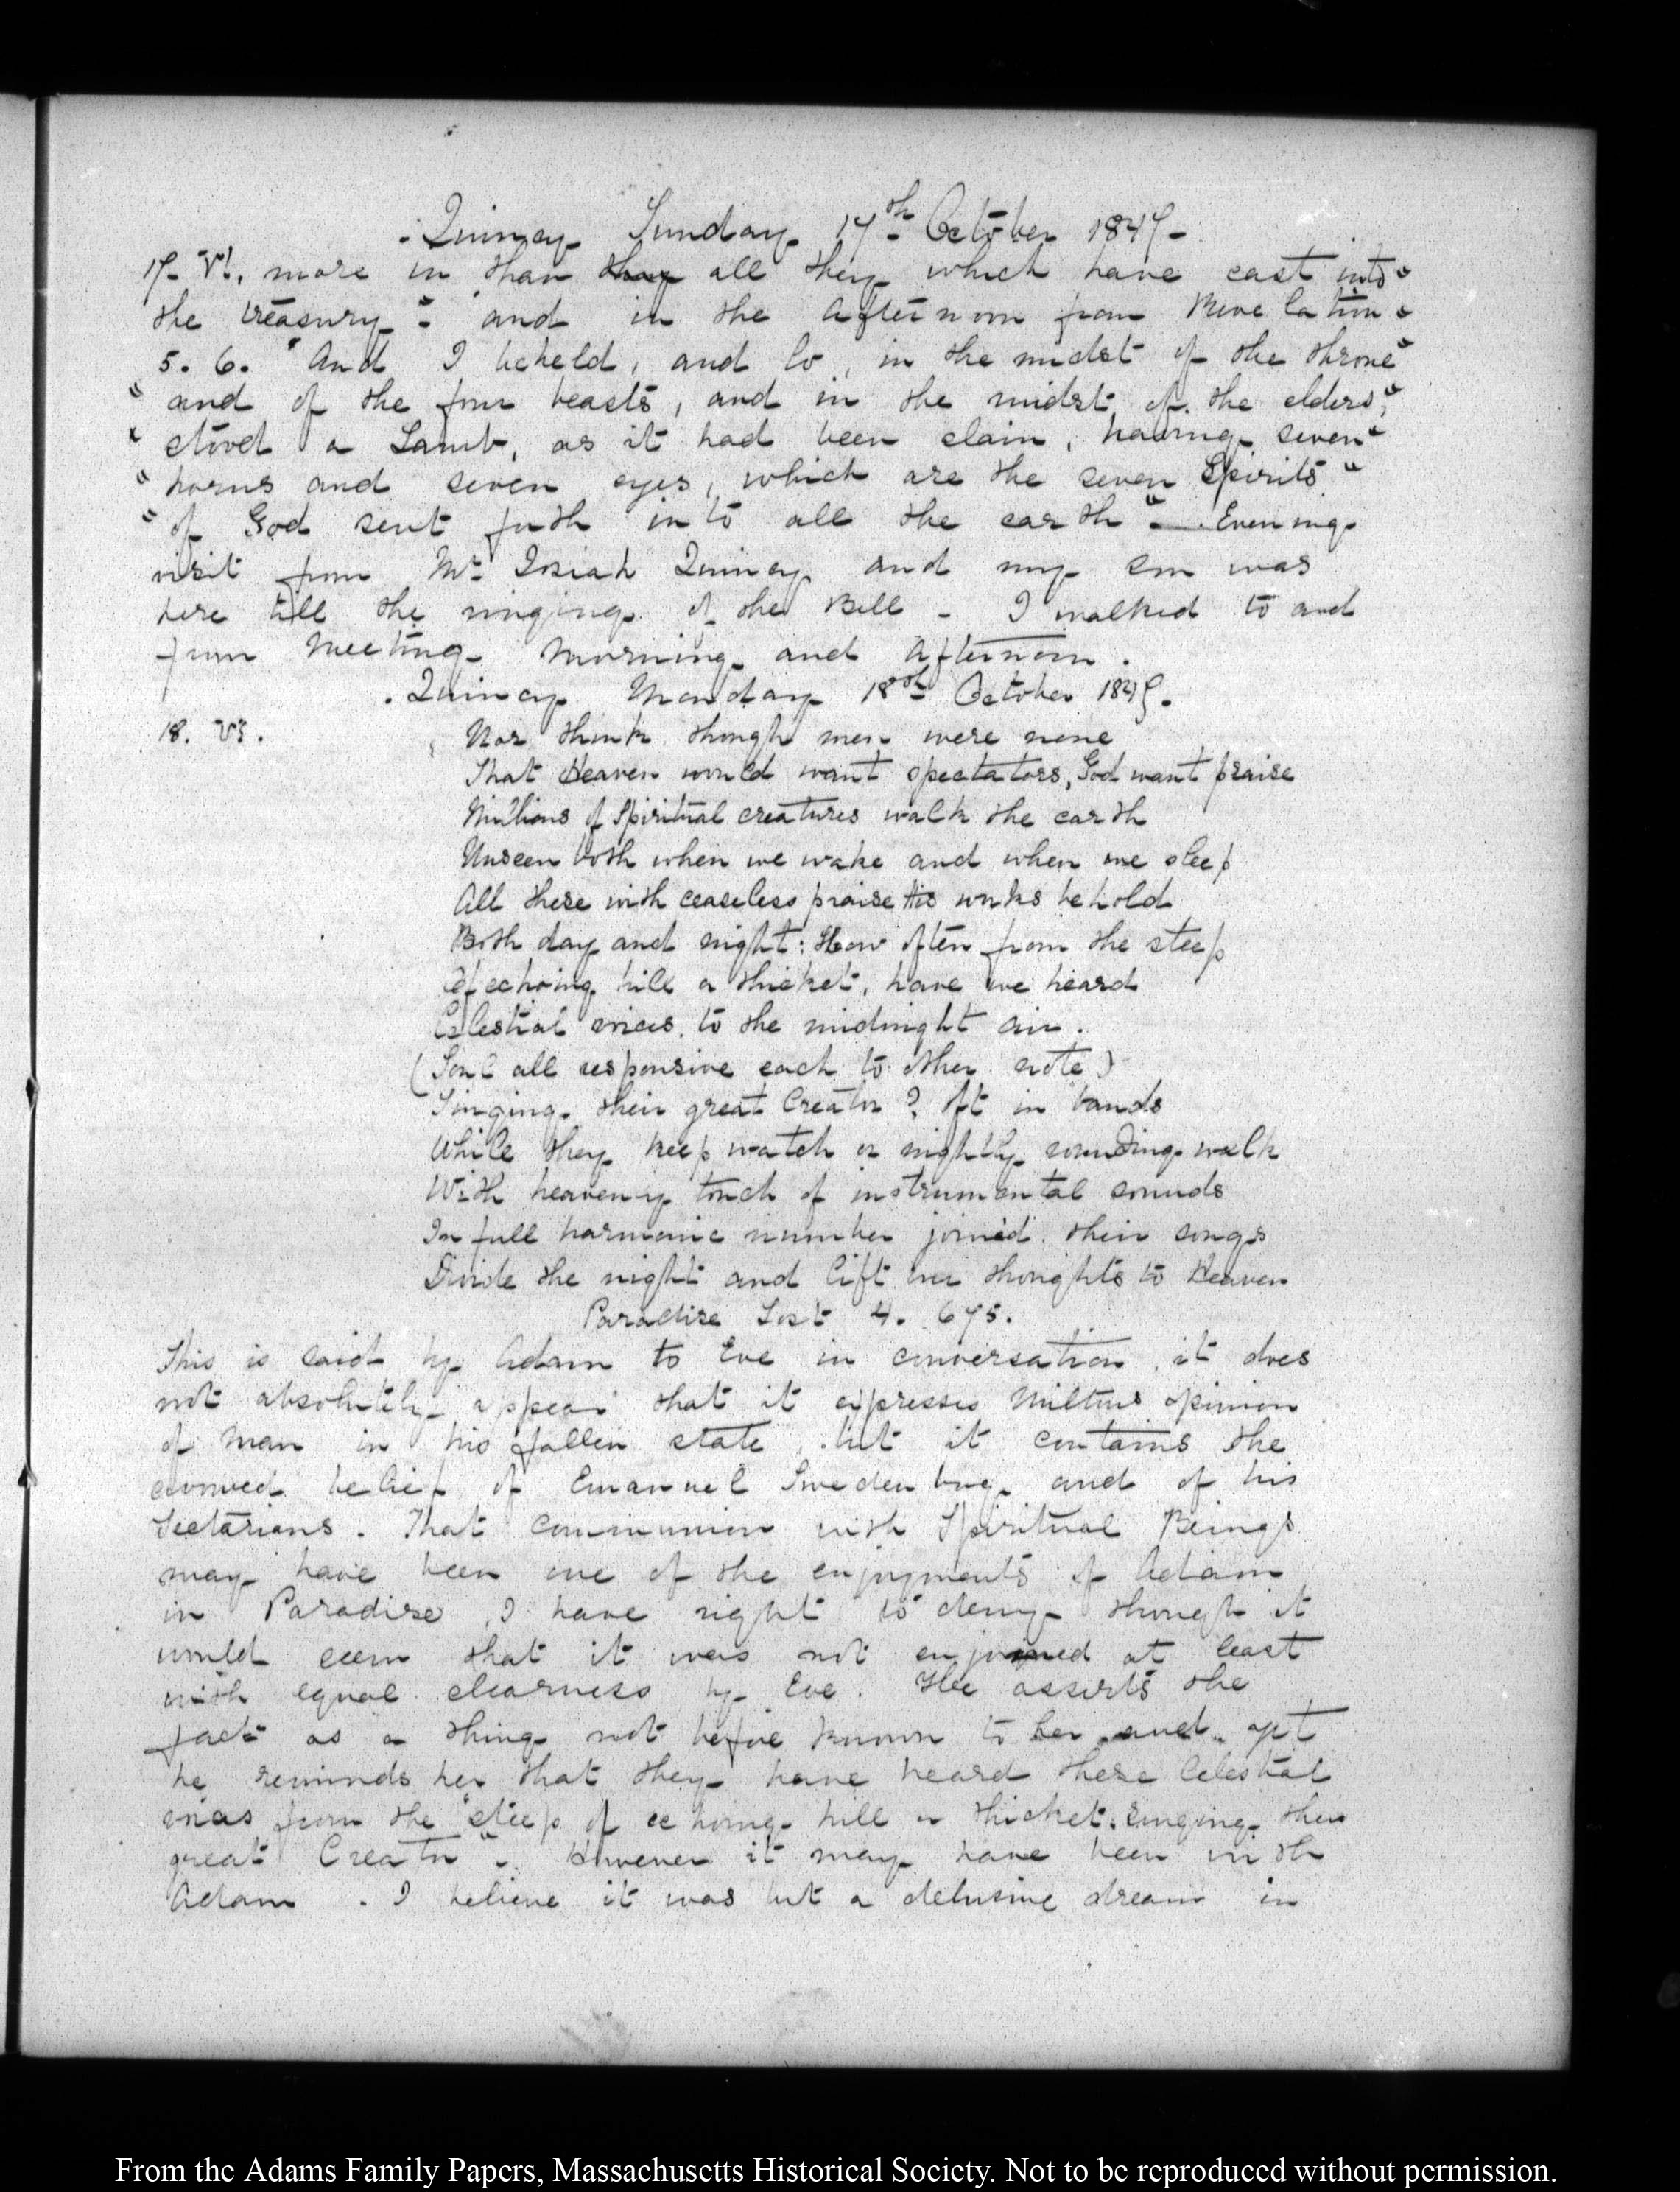 . Quincy Sunday 17th October 1847-
17- VI. more in than they all they which have cast into"
the treasury" - and in the Afternoon from Revelation"
5. 6. "And I beheld, and lo, in the midst of the throne"
" and of the four beasts, and in the midst of the elders,"
" stood a Lamb, as it had been slain, having seven"
" horns and seven eyes, which are the seven Spirits"
" of God sent forth into all the earth" — Evening
visit from Mr Josiah Quincy and my son was
here till the ringing of the Bell - I walked to and
from Meeting Morning and Afternoon.
. Quincy Monday 18th October 1847.
18. VI. Nor think though men were none
That Heaven would want spectators, God want praise
Millions of Spiritual creatures walk the earth
Unseen both when we wake and when we sleep
All these with ceaseless praise His works behold
Both day and night: How often from the steep
Of echoing hill or thicket, have we heard
Celestial voices to the midnight air.
(Sole all responsive each to other note)
Singing their great Creator? Oft in bands
While they keep watch or nightly rounding walk
With heavenly touch of instrumental sounds
In full harmonic number joined their songs
Divide the night and lift our thoughts to Heaven
Paradise Lost 4. 675.
This is said by Adam to Eve in conversation, it does
not absolutely appear that it expresses Miltons opinion
of Man in his fallen state, but it contains the
avowed belief of Emanuel Swedenborg and of his
Sectarians. That communion with Spiritual Beings
may have been one of the enjoyments of Adam
in Paradise, I have right to deny though it
would seem that it was not enjoined at least
with equal clearness by Eve. He asserts the
fact as a thing not before known to her and yet
he reminds her that they have heard these Celestial
voices from the "steep of echoing hill or thicket singing their
great Creator". However it may have been with
Adam . I believe it was but a delusive dream in
From the Adams Family Papers, Massachusetts Historical Society. Not to be reproduced without permission.